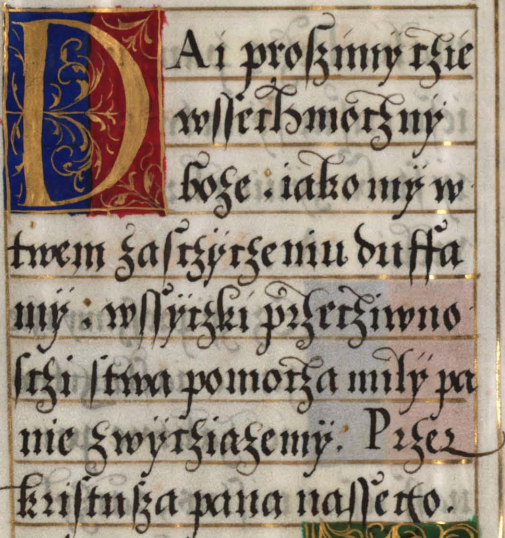 DAi proszimÿ czie
wssechmocznÿ
boze . iako mÿ w
twem zasczÿczeniu duffa
mÿ . wssÿczki przecziwno
sczi stwa pomocza milÿ pa
nie zwÿcziazemÿ. Przez
kristusza pana nassego.